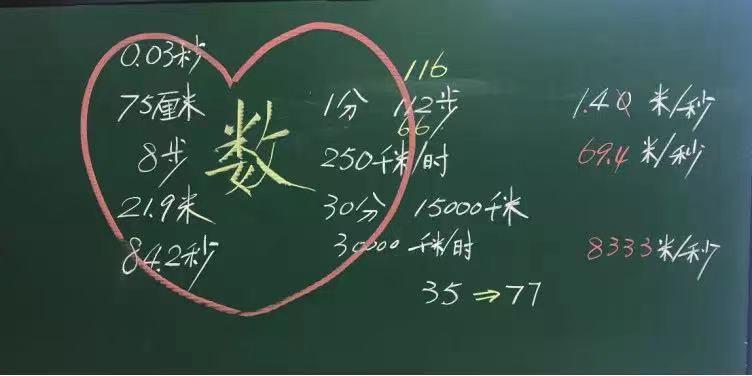 0.03秒
116
75厘米 1分 112步 1.40 米/秒
66%
8步 数 250千米/时 69.4 米/秒
21.9米 30分 15000千米
84.2秒 30000 千米/时 8333米/秒
35⇒77